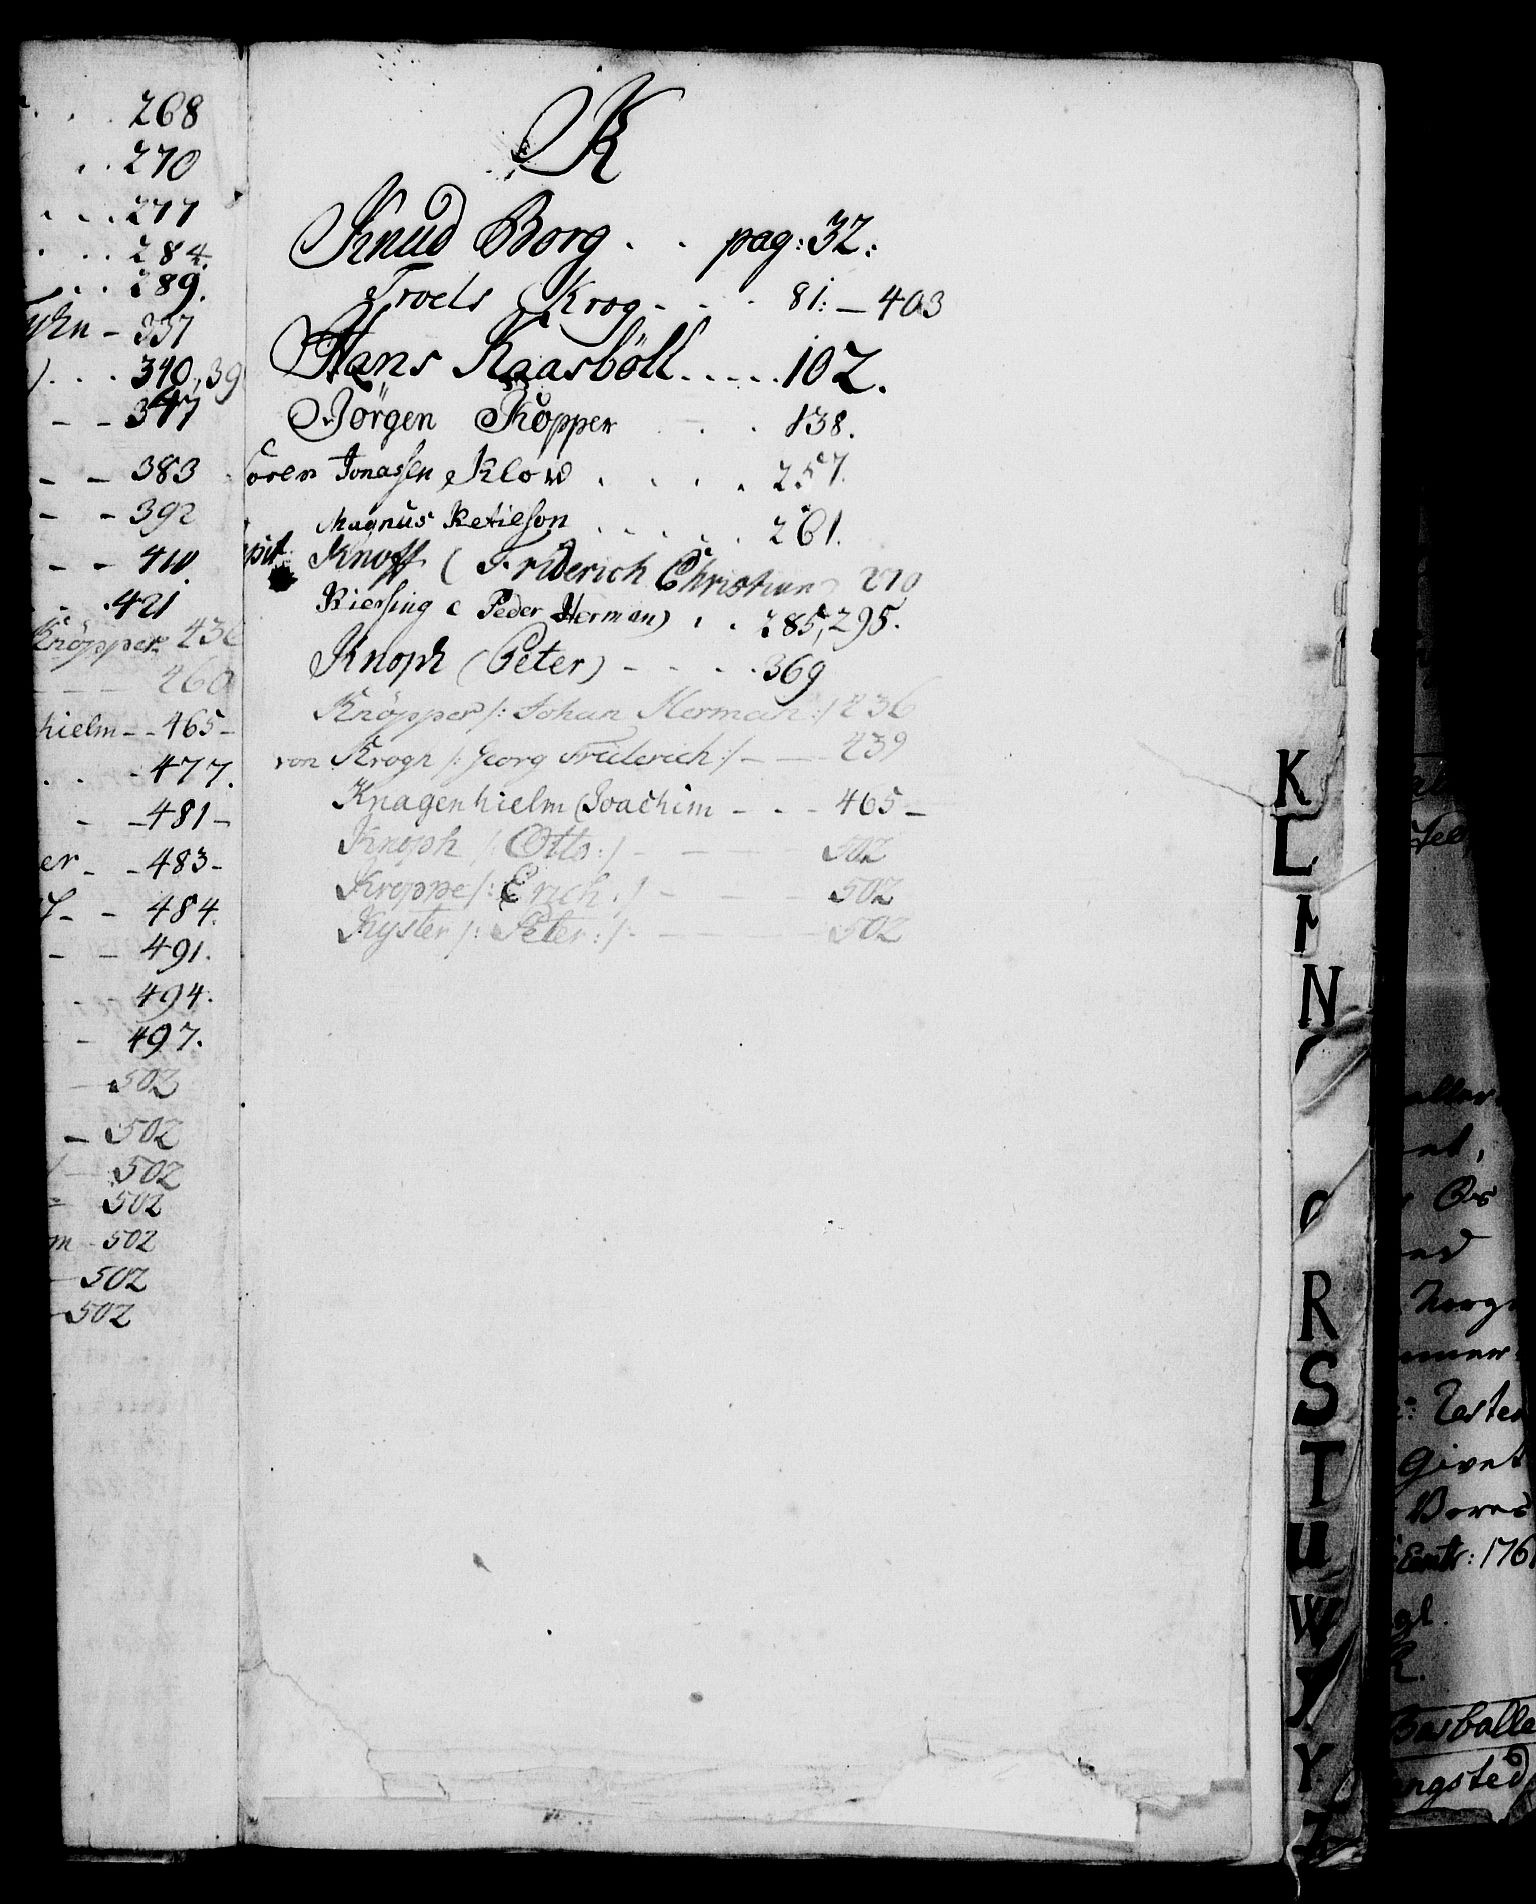 268
270
277
284.
289.
337
340, 39
347
383
392
410.
421
Knöpper 436
460
hielm - - 465 -
477.
- - 481 -
er - - 483 -
- - 484.
- - 491.
- 494.
- 497.
- 502
- 502
- 502
502
m - 502
- 502
- 502
K
Knud Borg . . pag: 32:
Troels Krog - - - 81: - 403
Hans Kaasböll . . . . . 102.
Jörgen Köpper . . 138.
Sören Jonassen Klow . . . . 257.
Magnus Ketilson . . . . . 261.
Knoff ( Friderich Christian) 270
Kiersing ( Peder Herman) . . 285, 295.
Knoph (Peter) - - - - . 369
Knöpper /: Johan Herman :/ 436
von Krogh /: Georg Friderich :/ - - - 439
Knagenhielm (Joachim - - - 465 -
Knoph /: Otto :/ - - - 502
Kroppe /: Erich :/ - - - 502
Kyster /: Peter :/ - - - - 502
K
L
N
R
S
T
U
W
Y
Z
Givet
1761
Basballe